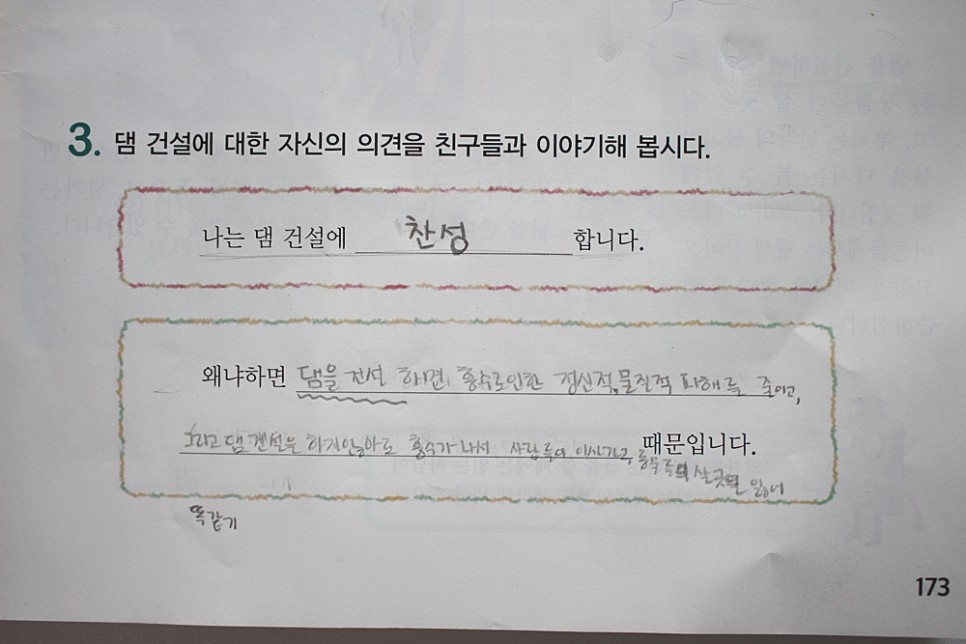 3. 댐 건설에 대한 자신의 의견을 친구들과 이야기해 봅시다.
나는 댐 건설에 찬성 합니다.
왜냐하면 댐을 건설 하면, 홍수로인한 정신적,물질적 피해를 줄이고,
그리고 댐 건설을 하지않아도 홍수가 나서 사람들이 이사가구 때문입니다.
동물들의 살곳을 잃어
똑같기
173